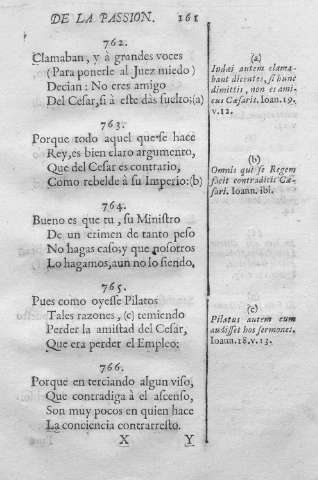 DE LA PASSION. 161
762.
Clamaban, y à grandes voces
(Para ponerle al Juez miedo)
Decian: No eres amigo
Del Cesar, si à este dàs suelto:(a)
763.
Porque todo aquel que se hace
Rey, es bien claro argumento,
Que del Cesar es contrario,
Como rebelde à su Imperio:(b)
764.
Bueno es que tu, su Ministro
De un crimen de tanto peso
No hagas caso; y que nosotros
Lo hagamos, aun no lo siendo.
765.
Pues como oyesse Pilatos
Tales razones, (c) temiendo
Perder la amistad del Cesar,
Que era perder el Empleo;
766.
Porque en terciando algun viso,
Que contradiga à el ascenso,
Son muy pocos en quien hace
La conciencia contrarresto.
X Y
(a)
Iudæi autem clama-
bant dicentes, si hunc
dimittis, non es ami-
cus Cæsaris. Ioan. 19.
v.12.
(b)
Omnis qui se Regem
facit contradicit Cæ-
sari. Ioann. ibi.
(c)
Pilatus autem cum
audisset hos sermones.
Ioann. 18. v. 13.